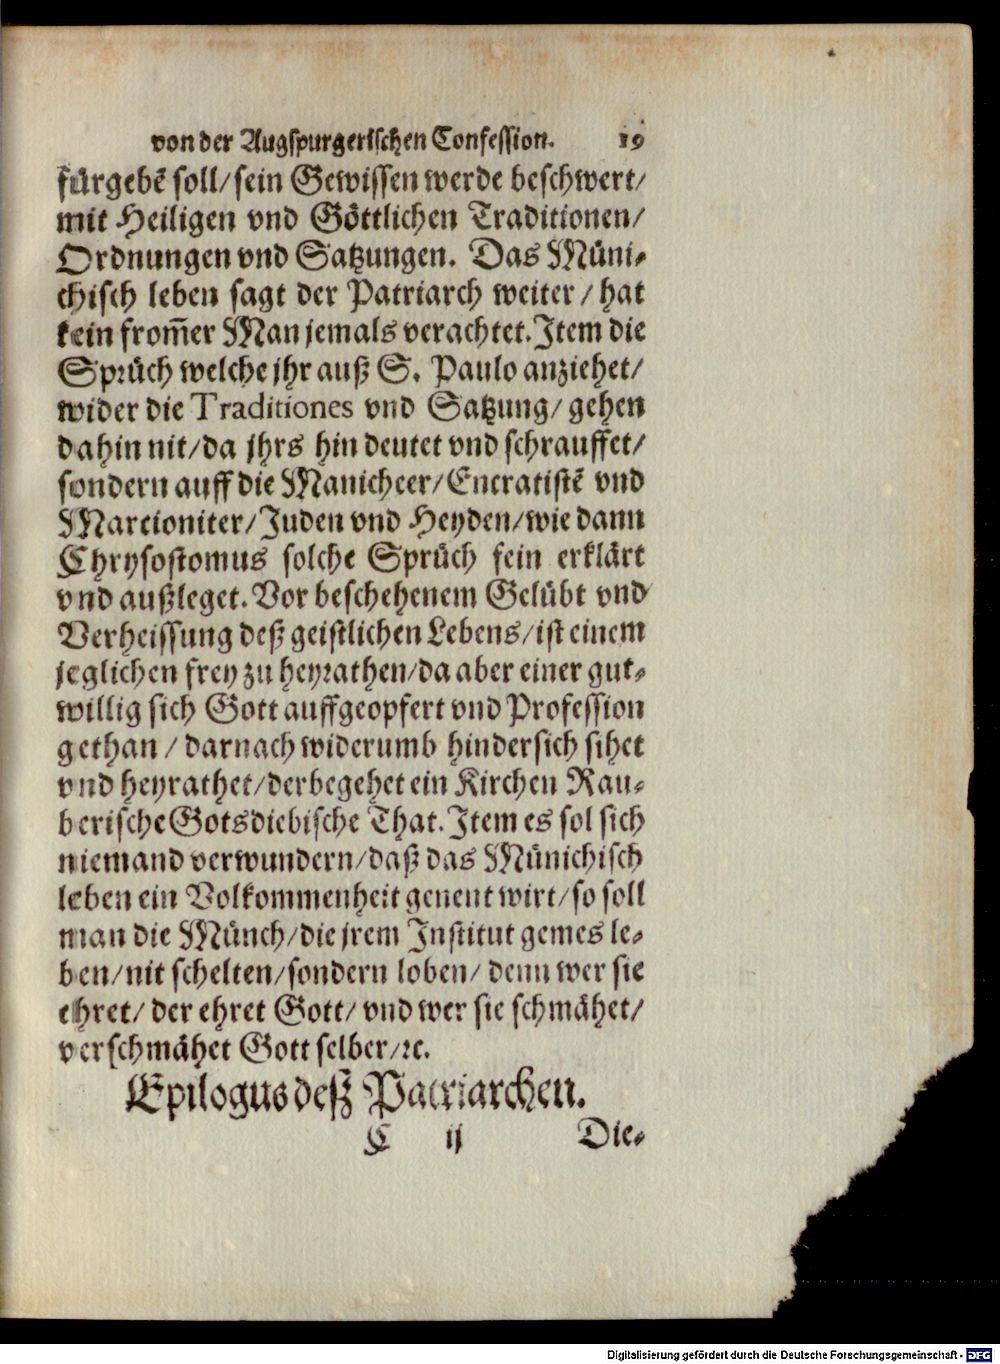 von der Augspurgerischen Confession. 19
fürgebẽ soll/sein Gewissen werde beschwert/
mit Heiligen vnd Göttlichen Traditionen/
Ordnungen vnd Satzungen. Das Müni-
chisch leben sagt der Patriarch weiter/ hat
kein from̃er Man jemals verachtet. Item die
Sprüch welche jhr auß S. Paulo anziehet/
wider die Traditiones vnd Satzung/ gehen
dahin nit/da jhrs hin deutet vnd schrauffet/
sondern auff die Manicheer/Encratistẽ vnd
Marcioniter/Juden vnd Heyden/wie dann
Chrysostomus solche Sprüch fein erklärt
vnd außleget. Vor beschehenem Gelübt vnd
Verheissung deß geistlichen Lebens/ist einem
jeglichen frey zu heyrathen/da aber einer gut-
willig sich Gott auffgeopfert vnd Profession
gethan/ darnach widerumb hindersich sihet
vnd heyrathet/der begehet ein Kirchen Rau-
berische Gotsdiebische That. Item es sol sich
niemand verwundern/daß das Münichisch
leben ein Volkommenheit genent wirt/so soll
man die Münch/die jrem Institut gemes le-
ben/nit schelten/sondern loben/ denn wer sie
ehret/ der ehret Gott/ vnd wer sie schmähet/
verschmähet Gott selber/ꝛc.
Epilogus deß Patriarchen.
C ij Die-
Digitalisierung gefördert durch die Deutsche Forschungsgemeinschaft - DFG